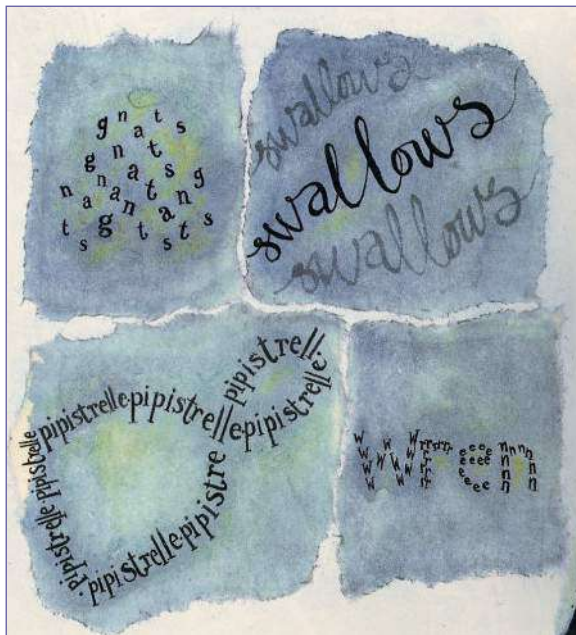 gnats
gnats
gnats
gnats
gnats
swallows
swallows
swallows
pipistrelle·pipistrelle·pipistrelle·pipistrelle·pipistrelle·pipistrelle·pipistrelle·pipistre
wren